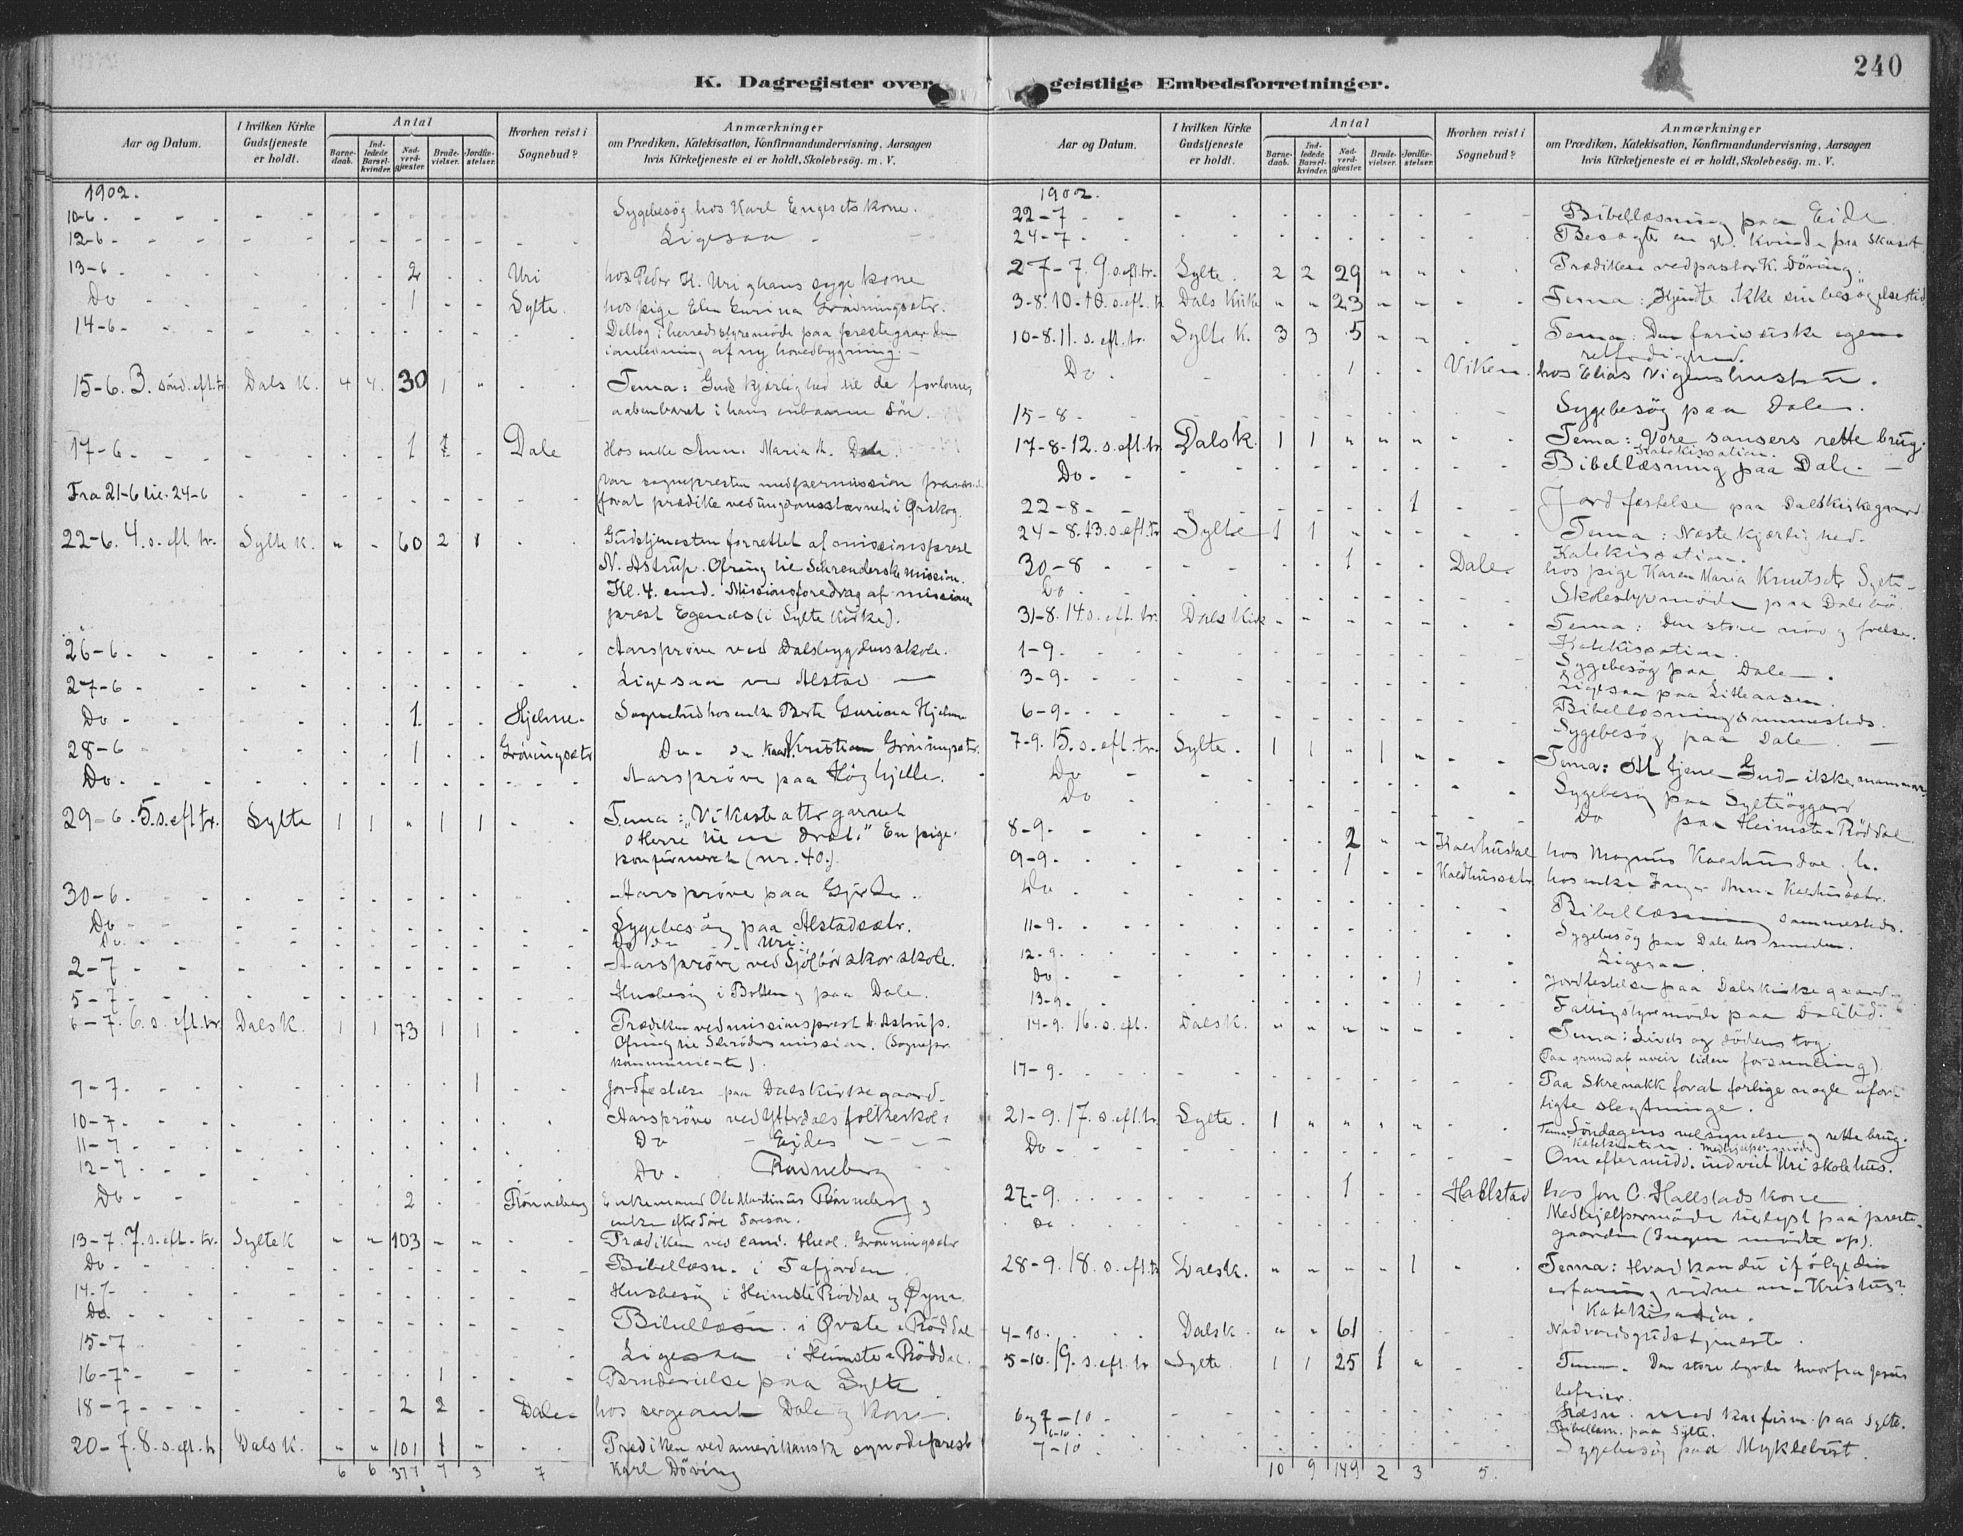 240
K. Dagregister over geistlige Embedsforretninger.
Aar og Datum.
I hvilken Kirke Gudstjeneste er holdt.
Antal
Barnedaab.
Indledede Barselkvinder.
Nadverdgjester.
Brudevielser.
Jordfæstelser.
Hvorhen reist i Sognebud?
Anmærkninger
om Prædiken, Katekisation, Konfirmandundervisning, Aarsagen
hvis Kirketjeneste ei er holdt, Skolebesög. m. V.
1902.
10-6 - Sygebesög hos Karl Engesets kone.
12-6 - Ligesaa -
13-6 - 2 - Uri hos Peder K. Uri g hans syge kone
Do - 1 - Sylte. hos pige Elen Gurina Gröningsætr.
14-6 - Deltog i herredsstyremöde paa prestegaarden
i anledning af ny hovedbygning. -
15-6. 3. sönd. eft. tr. Dals K. 4 4. 30 1 " - Tema: Guds kjærlighed til de fortabne,
aabenbaret i hans enbaarne Sön.
17-6 - 1 - Dale Hos enke Ann. Maria A. Dale.
Fra 21-6 til 24-6 - Var sognepresten med permission
forat prædike ved ungdomsstævnet i Ørskog.
22-6. 4. s. eft. tr. Sylte K. " - 60 2 1 - Gudstjenesten forrettet af missionsprest
N. Astrup. Ofring til Schreuderske mission.
Kl. 4. emd. Missionsforedrag af missions-
prest Egenæs (i Sylte Kirke).
26-6 - Aarspröve ved Dalsbygdens skole.
27-6 - Ligesaa ved Alstad -
Do - 1 - Hjelme - Sognebud hos enke Berte Gurina Hjelme
28-6 - 1 - Gröningsætr Do - Kristian Gröningsætr.
Do - Aarspröve paa Höghjelle.
29-6. 5. s. eft. tr. Sylte 1 1 " 1 1 - Tema: "Vi kaste atter garnet
o Herre til en dræt." En pige
konfirmeret (nr. 40.)
30-6. - Aarspröve paa Gjerde.
Do - Sygebesög paa Alstadsætr.
Do. - Do do Uri.
2-7 - Aarspröve ved Sjölbörskor skole.
5-7 - Husbesög i Botten g paa Dale.
6-7. 6. s. eft. tr. Dals K. 1 1 73 1 1 Prædiken ved missionsprest N. Astrup.
Ofring til Schröders mission. (Sognepr.
kommunicerte).
7-7 - 1 - Jordfestelse paa Dalskirkegaard.
10-7 - Aarspröve ved Ytterdals folkeskole
11-7 - Do - Eides -
12-7 - Do. Rönneberg
Do - 2 - Rönneberg Enkemand Ole Martinus Rönneberg g
enke efter Tore Toreson.
13-7. 7. s. eft. tr. Sylte K " " 103 - " - Prædiken ved cand. theol. Gröningsætr
Do. - Bibellæsn. i Tafjorden
14.7 - Husbesög i Heimste Röddal g Øyen.
Do - Bibellæsn. i Øvste Röddal
15-7 Ligesaa i Heimste Röddal.
16-7 - 1 - Brudevielse paa Sylte
18-7 - 2 2 - Dale - hos sergeant Dale g kone.
20-7. 8. s. eft. tr. Dals K. " " 101 1 " - Prædiken ved amerikansk synodeprest
Karl Döving
6 6 377 7 3 7
Aar og Datum.
I hvilken Kirke Gudstjeneste er holdt.
Antal
Barnedaab.
Indledede Barselkvinder.
Nadverdgjester.
Brudevielser.
Jordfæstelser.
Hvorhen reist i Sognebud?
Anmærkninger
om Prædiken, Katekisation, Konfirmandundervisning, Aarsagen
hvis Kirketjeneste ei er holdt, Skolebesög. m. V.
1902.
22-7 - Bibellæsning paa Eide
24-7 - Besögte en gl. kvinde paa Skuset
27-7. 9. s. eft. tr. Sylte. 2 2 29 " " - Prædiken ved pastor K. Döving.
3-8. 10. s. eft. tr Dals Kirke " " 23 - Tema: Kjendte ikke sin besögelsestid
10-8. 11. s. eft. tr. Sylte K. 3 3 5 " - Tema: Den fariseiske egen-
retfædighed.
Do - 1 - Viken. hos Elias Vigens hustru.
15-8 - Sygebesög paa Dale.
17-8-12. s. eft. tr. Dals K. 1 1 " " " - Tema: Vore sansers rette brug.
Katekisation.
Do - Bibellæsning paa Dale -
22-8 - 1 - Jordfæstelse paa Dalskirkegaard
24-8. 13. s. eft. tr Sylte 1 1 - Tema: Næstekjærlighed.
Katekisation.
30-8 - 1 - Dale - hos pige Karen Maria Knutsdtr Sylte -
Do - Skolestyremöde paa Dalebö.
31-8. 14. s. eft. tr. Dals Kirke - Tema: Den store nöd g frelse.
Katekisation.
1-9 - Sygebesög paa Dale.
3-9 - Ligesaa paa Litleaasen.
6-9 - Bibellæsning sammesteds.
Sygebesög paa Dale. -
7-9. 15. s. eft. tr. Sylte. 1 1 " 1 " - Tema: At tjene Gud - ikke mammon
Do - Sygebesög paa Sylteöygard
Do - Do paa Heimste Röddal
8-9 - 2 " " Kaldhusdal hos Magnus Kaldhusdal.
9-9 - 1 - Kaldhussætr hos enke Inger Anna Kaldhussætr.
Do - Bibellæsning sammesteds.
11-9. - Sygebesög paa Dale hos smeden.
12-9. - Ligesaa.
Do - 1 - Jordfestelse paa Dalskirkegaard -
13-9. - Fattigstyremöde paa Dalebö.
14-9. 16. s. eft. Dals K. " " " " " - Tema: Livets og dödens tog.
(Paa grund af uveir liden forsamling)
17-9 - Paa Skrenakk forat forlige nogle ufor-
ligte slegtninge.
21-9. 17. s. eft. tr. Sylte. 1 " " " " - Tema: Söndagens velsignelse g rette brug.
Katekisation. (Medhjelpermöde)
Do - Om eftermidd. indviet Uri skolehus.
27-9. - 1 - Hallstad hos Jon C. Hallstads kone
Do - Medhjelpermöde tilyst paa preste-
gaarden (Ingen mödte op).
28-9. 18. s. eft. tr Dals K. " " " " 1 - Tema: Hvad kan du ifölge din
erfaring vidne om Kristus?
Katekisation.
4-10. - Dals K. " " 61 - Nadverdgudstjeneste.
5-10. 19. s. eft. tr Sylte. 1 1 25 1 " - Tema - Den store byrde hvorfra Jesus
befrier.
6 g 7-10 - Læsn. med konfirm. paa Sylte.
6-10. Bibellæsn. paa Sylte.
7-10 - Sygebesög paa Myklebust.
10 9 149 2 3 5.